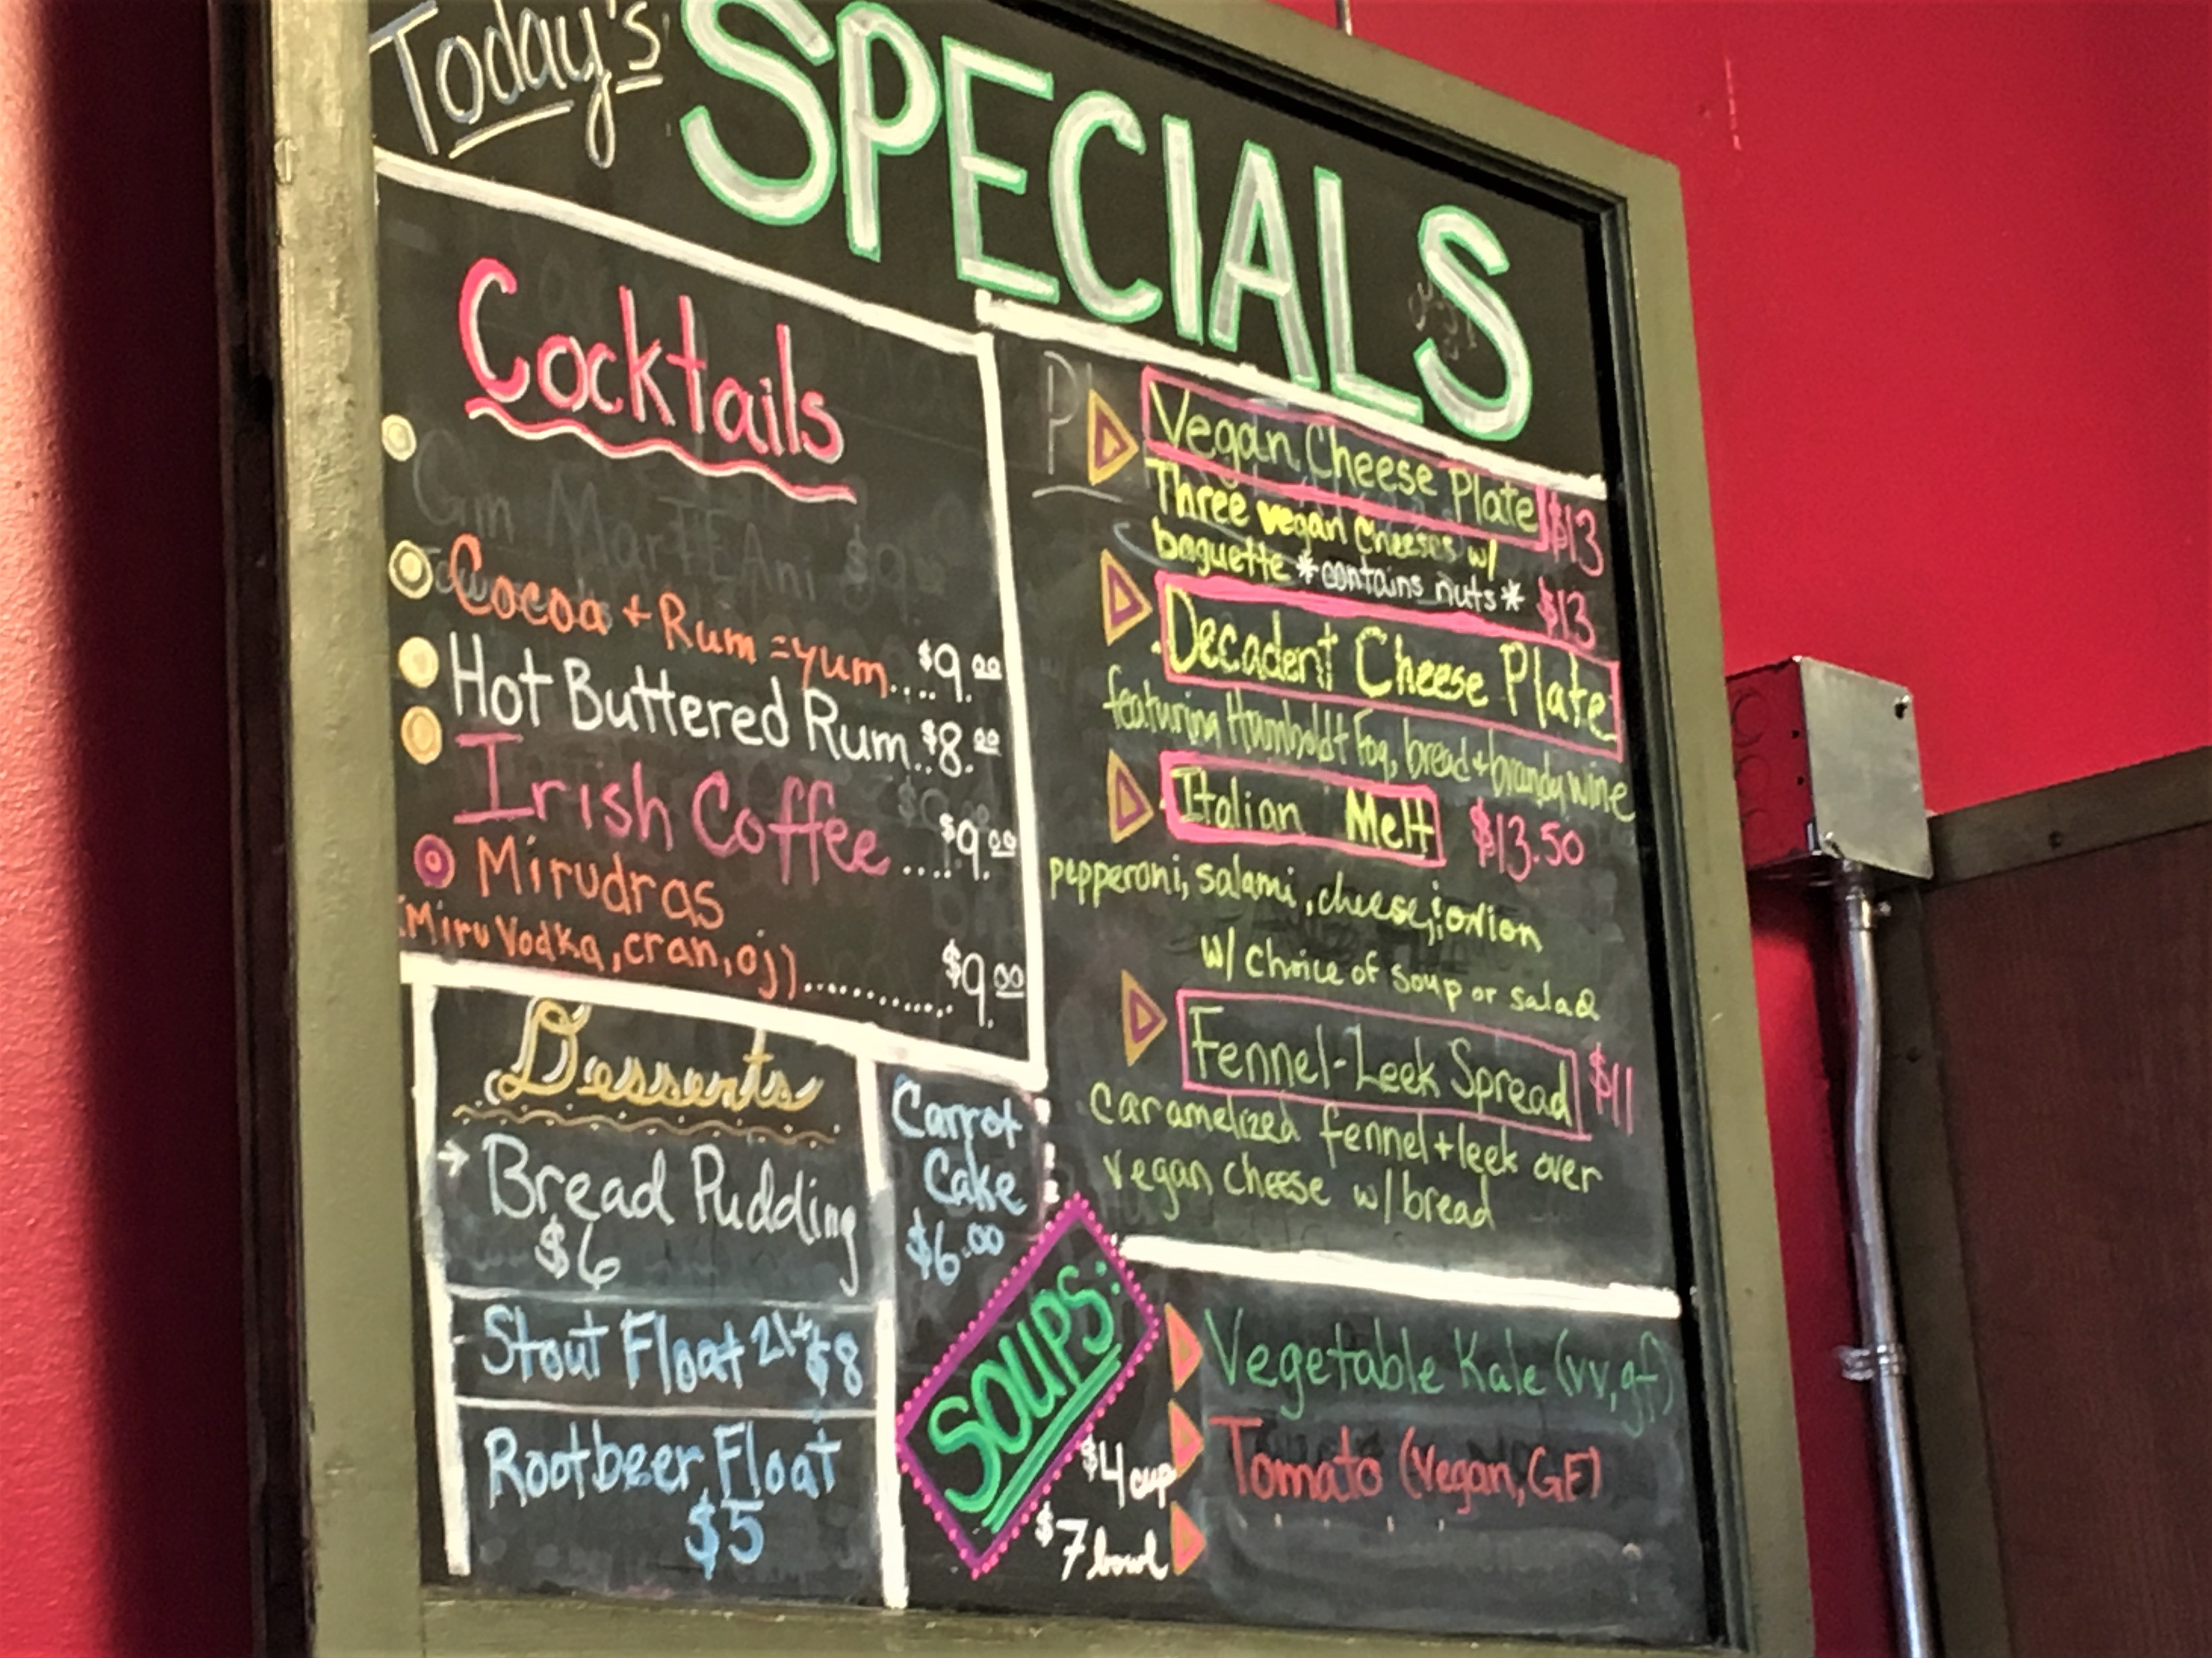 Today's SPECIALS
Cocktails
Gin MarTEAni $9
Cocoa + Rum = yum.... $9.00
Hot Buttered Rum.. $8.00
Irish Coffee .... $9.00
Mirudras
(Miru Vodka, cran, oj) ............ $9.00
Desserts
→ Bread Pudding
$6
Stout Float 21+ $8
Rootbeer Float
$5
Carrot
Cake
$6.00
Vegan Cheese Plate $13
Three vegan cheeses w/
baguette *contains nuts*
$13
Decadent Cheese Plate
featuring Humboldt Fog, bread + brandywine
Italian Melt $13.50
pepperoni, salami, cheese, onion
w/ choice of soup or salad
Fennel-Leek Spread $11
caramelized fennel + leek over
vegan cheese w/ bread
SOUPS:
$4 cup
$7 bowl
Vegetable Kale (vv, gf)
Tomato (Vegan, GF)